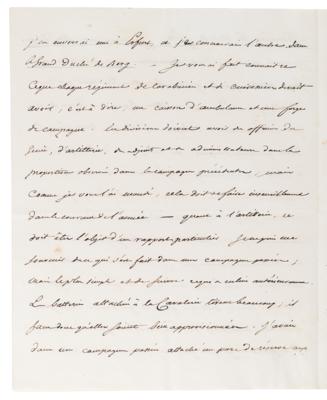 j'en enverrai un à Erfurt, et j'en conserverai l'autre dans
le Grand Duché de Berg. — Je vous ai fait connaître
ce que chaque régiment de carabiniers et de cuirassiers devait
avoir; c'est à dire, un caisson d'ambulance et une forge
de campagne. Les divisions doivent avoir des officiers du
Génie, d'artillerie, des adjoints et des administrateurs dans la
proportion observée dans les campagnes précédentes, mais
comme je vous l'ai mandé, cela doit se faire insensiblement
dans le courant de l'année — quant à l'artillerie, ce
doit être l'objet d'un rapport particulier. Je
souviens de ce qui s'est fait dans une campagne passée;
mais le plus simple et de suivre ce qui a eu lieu antérieurement.
Les batteries attachées à la Cavalerie tirent beaucoup; il
faut donc qu'elles soient bien approvisionnées. J'avais
dans une campagne passée attaché un parc de réserve aux